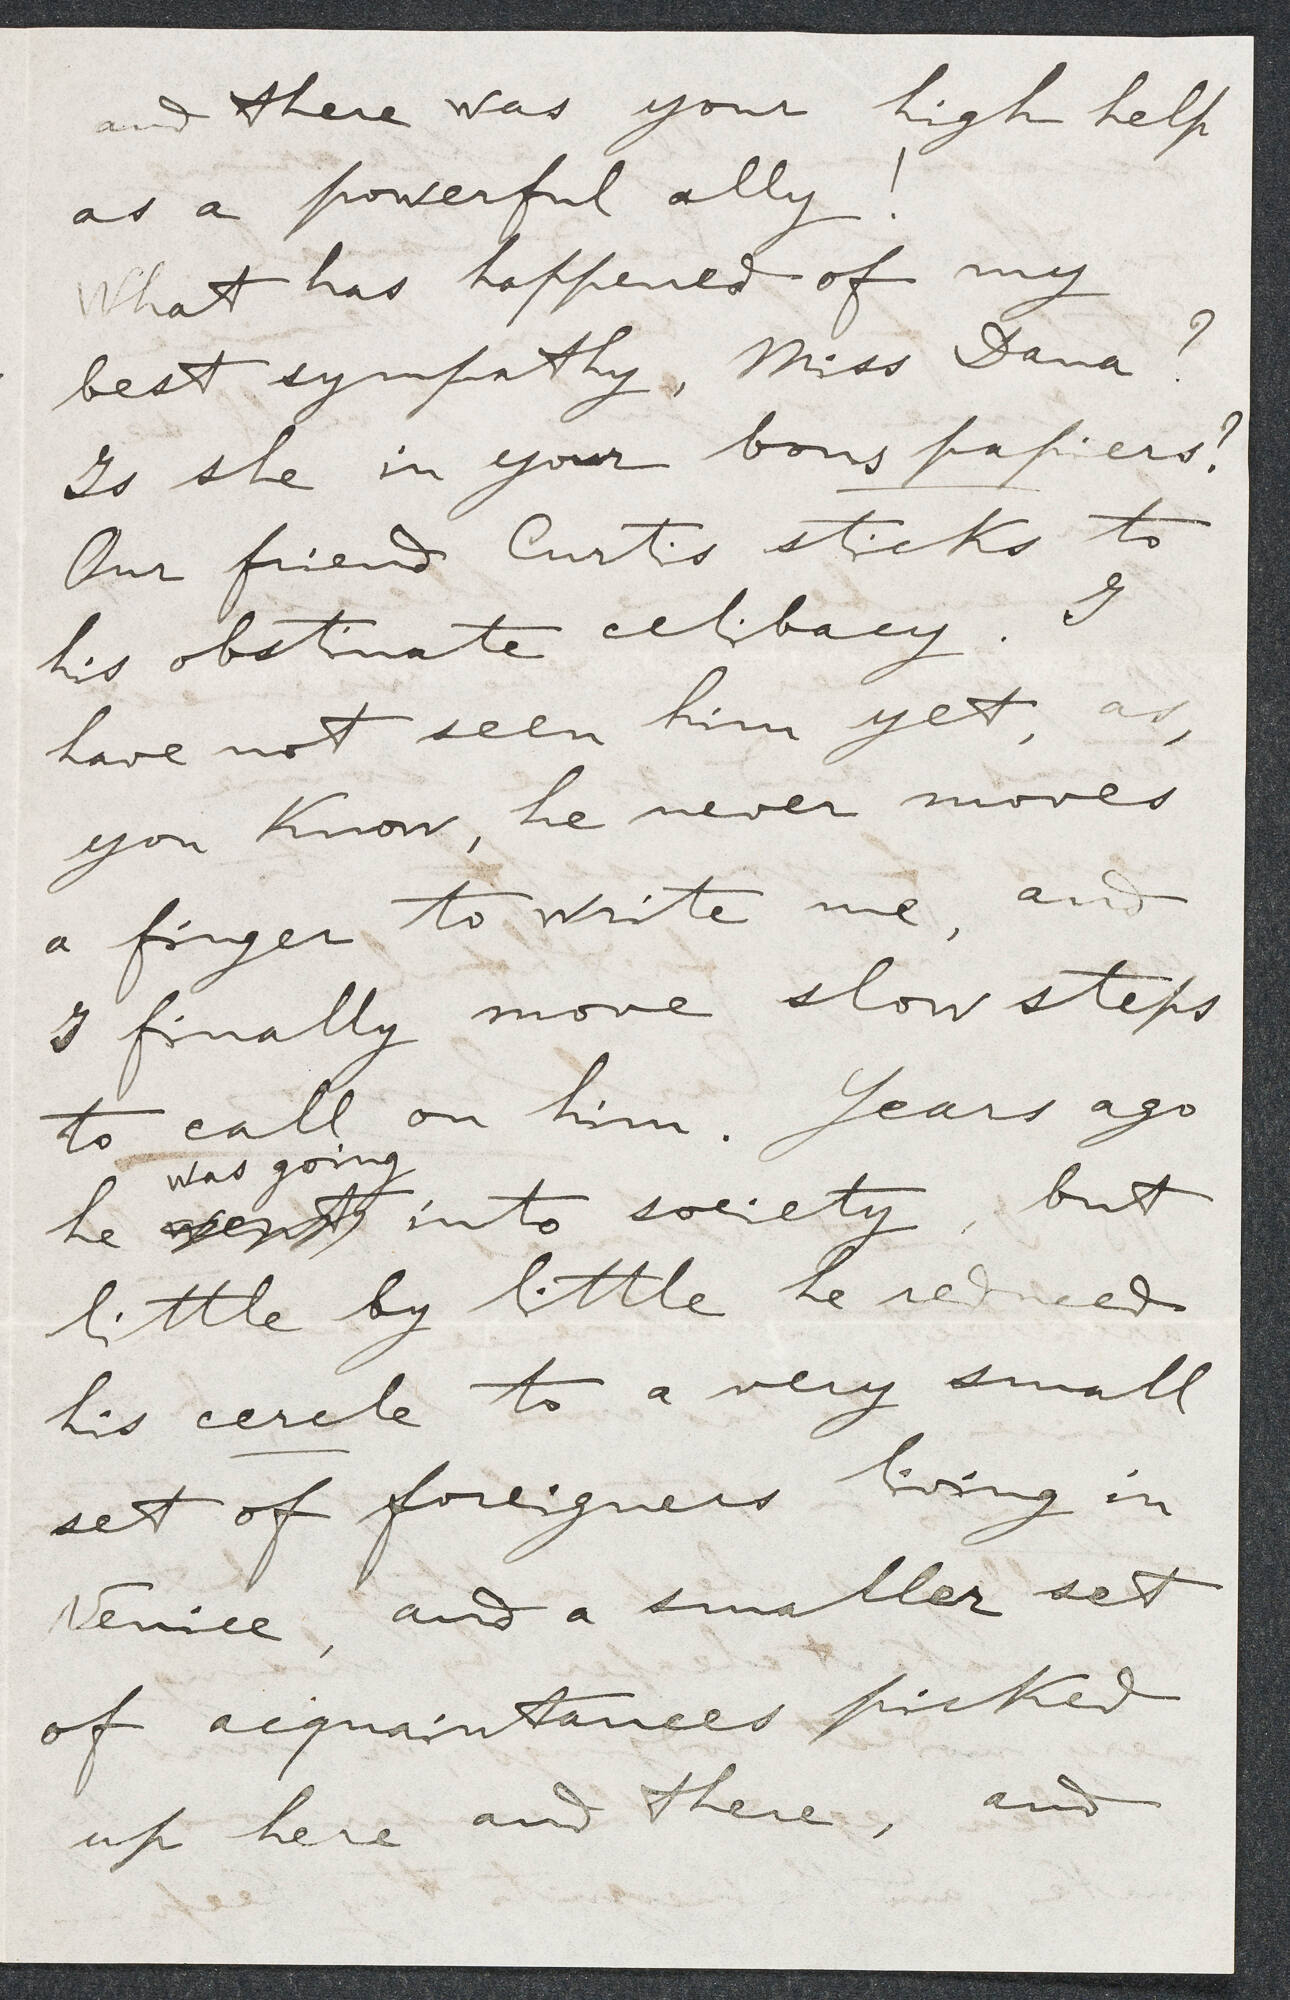 and there was your high help
as a powerful ally!
What has happened of my
best sympathy, Miss Dana?
Is she in your bons papiers?
Our friend Curtis sticks to
his obstinate celibacy. I
have not seen him yet, as,
you know, he never moves
a finger to write me, and
I finally move slow steps
to call on him. Years ago
was going
he went into society, but
little by little he reduced
his cercle to a very small
set of foreigners living in
Venice, and a smaller set
of acquaintances picked
up here and there, and